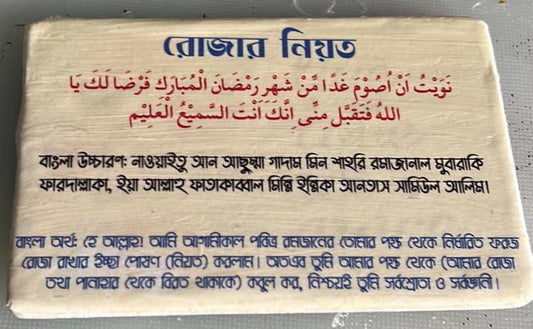 রোজার নিয়ত
نَوَيْتُ اَنْ اُصُوْمَ غَدًا مِّنْ شَهْرِ رَمْضَانَ الْمُبَارَكِ فَرْضَا لَكَ يَا
اللهُ فَتَقَبَّل مِنِّى اِنَّكَ اَنْتَ السَّمِيْعُ الْعَلِيْم
বাংলা উচ্চারণ: নাওয়াইতু আন আছুম্মা গাদাম মিন শাহরি রমাজানাল মুবারাকি
ফারদাল্লাকা, ইয়া আল্লাহু ফাতাকাব্বাল মিন্নি ইন্নিকা আনতাস সামিউল আলিম।
বাংলা অর্থ: হে আল্লাহ! আমি আগামীকাল পবিত্র রমজানের তোমার পক্ষ থেকে নির্ধারিত ফরজ
রোজা রাখার ইচ্ছা পোষণ (নিয়ত) করলাম। অতএব তুমি আমার পক্ষ থেকে (আমার রোজা
তথা পানাহার থেকে বিরত থাকাকে) কবুল কর, নিশ্চয়ই তুমি সর্বশ্রোতা ও সর্বজ্ঞানী।